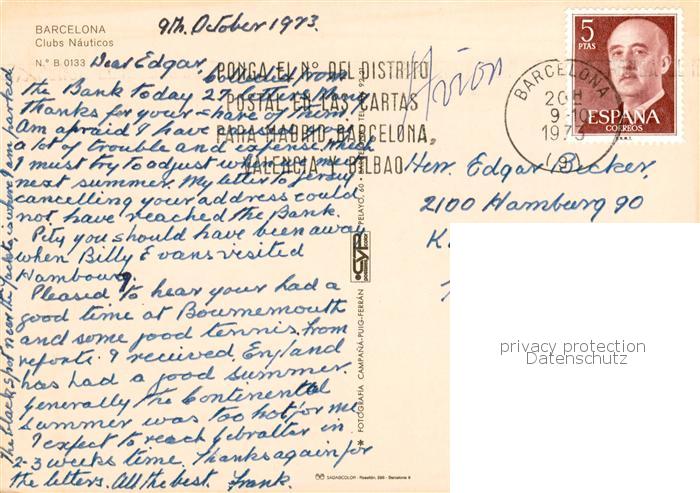 BARCELONA
Clubs Náuticos
N.º B 0133
9th. October 1973.
Dear Edgar,
Collected from
the Bank today 27 letters. Many
thanks for your share of them.
Am afraid I have caused you
a lot of trouble and expense which
I must try to adjust when we meet
next summer. My letter to Jersey
cancelling your address could
not have reached the Bank.
Pity you should have been away
when Billy Evans visited
Hambourg.
Pleased to hear your had a
good time at Bournemouth
and some good tennis. From
reports I received, England
has had a good summer.
Generally the Continental
summer was too hot for me.
I expect to reach Gibraltar in
2-3 weeks time. Thanks again for
the letters. All the best. Frank.
The black spot near the Yachts, is where I am parked
PONGA EL Nº DEL DISTRITO
POSTAL EN LAS CARTAS
PARA MADRID BARCELONA,
VALENCIA Y BILBAO
Avion
BARCELONA
20H
9-10
1973
(9)
5
PTAS
ESPAÑA
CORREOS
F.N.M.T.
Herr. Edgar Becker.
2100 Hamburg 90
K
PELAYO, 60
CYP
FOTOGRAFÍA CAMPAÑÁ-PUIG-FERRÁN
SADAGCOLOR - Rosellón, 298 - Barcelona 9
privacy protection
Datenschutz